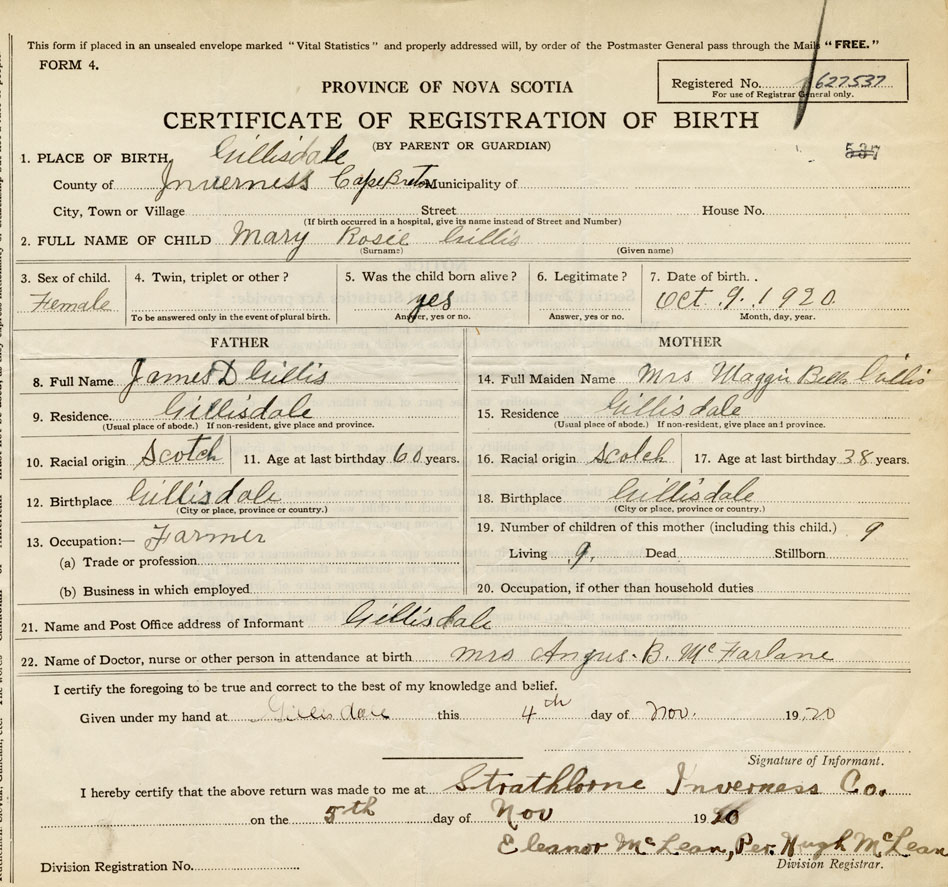 This form if placed in an unsealed envelope marked "Vital Statistics" and properly addressed will, by order of the Postmaster General pass through the Mails "FREE."
FORM 4.
Registered No. 627537
For use of Registrar General only.
PROVINCE OF NOVA SCOTIA
CERTIFICATE OF REGISTRATION OF BIRTH
(BY PARENT OR GUARDIAN)
537
1. PLACE OF BIRTH, Gillisdale
County of Inverness Cape Breton Municipality of
City, Town or Village Street House No.
(If birth occurred in a hospital, give its name instead of Street and Number)
2. FULL NAME OF CHILD Mary Rosie Gillis
(Surname) (Given name)
3. Sex of child. 4. Twin, triplet or other? 5. Was the child born alive? 6. Legitimate? 7. Date of birth. .
Female yes Oct. 9. 1920
To be answered only in the event of plural birth. Answer, yes or no. Answer, yes or no. Month, day, year.
FATHER MOTHER
8. Full Name James D Gillis 14. Full Maiden Name Mrs Maggie Bell Gillis
9. Residence. Gillisdale 15. Residence Gillisdale
(Usual place of abode.) If non-resident, give place and province. (Usual place of abode.) If non-resident, give place and province.
10. Racial origin Scotch 11. Age at last birthday 60 years. 16. Racial origin Scotch 17. Age at last birthday 38 years.
12. Birthplace Gillisdale 18. Birthplace Gillisdale
(City or place, province or country.) (City or place, province or country.)
13. Occupation:— Farmer 19. Number of children of this mother (including this child.) 9
(a) Trade or profession Living 9. Dead Stillborn
(b) Business in which employed 20. Occupation, if other than household duties
21. Name and Post Office address of Informant Gillisdale
22. Name of Doctor, nurse or other person in attendance at birth Mrs Angus. B. McFarlane
I certify the foregoing to be true and correct to the best of my knowledge and belief.
Given under my hand at Gillisdale this 4th day of Nov. 1920
Signature of Informant.
I hereby certify that the above return was made to me at Strathlorne Inverness Co.
on the 5th day of Nov 1920
Eleanor McLean, Per. Hugh McLean
Division Registration No. Division Registrar.